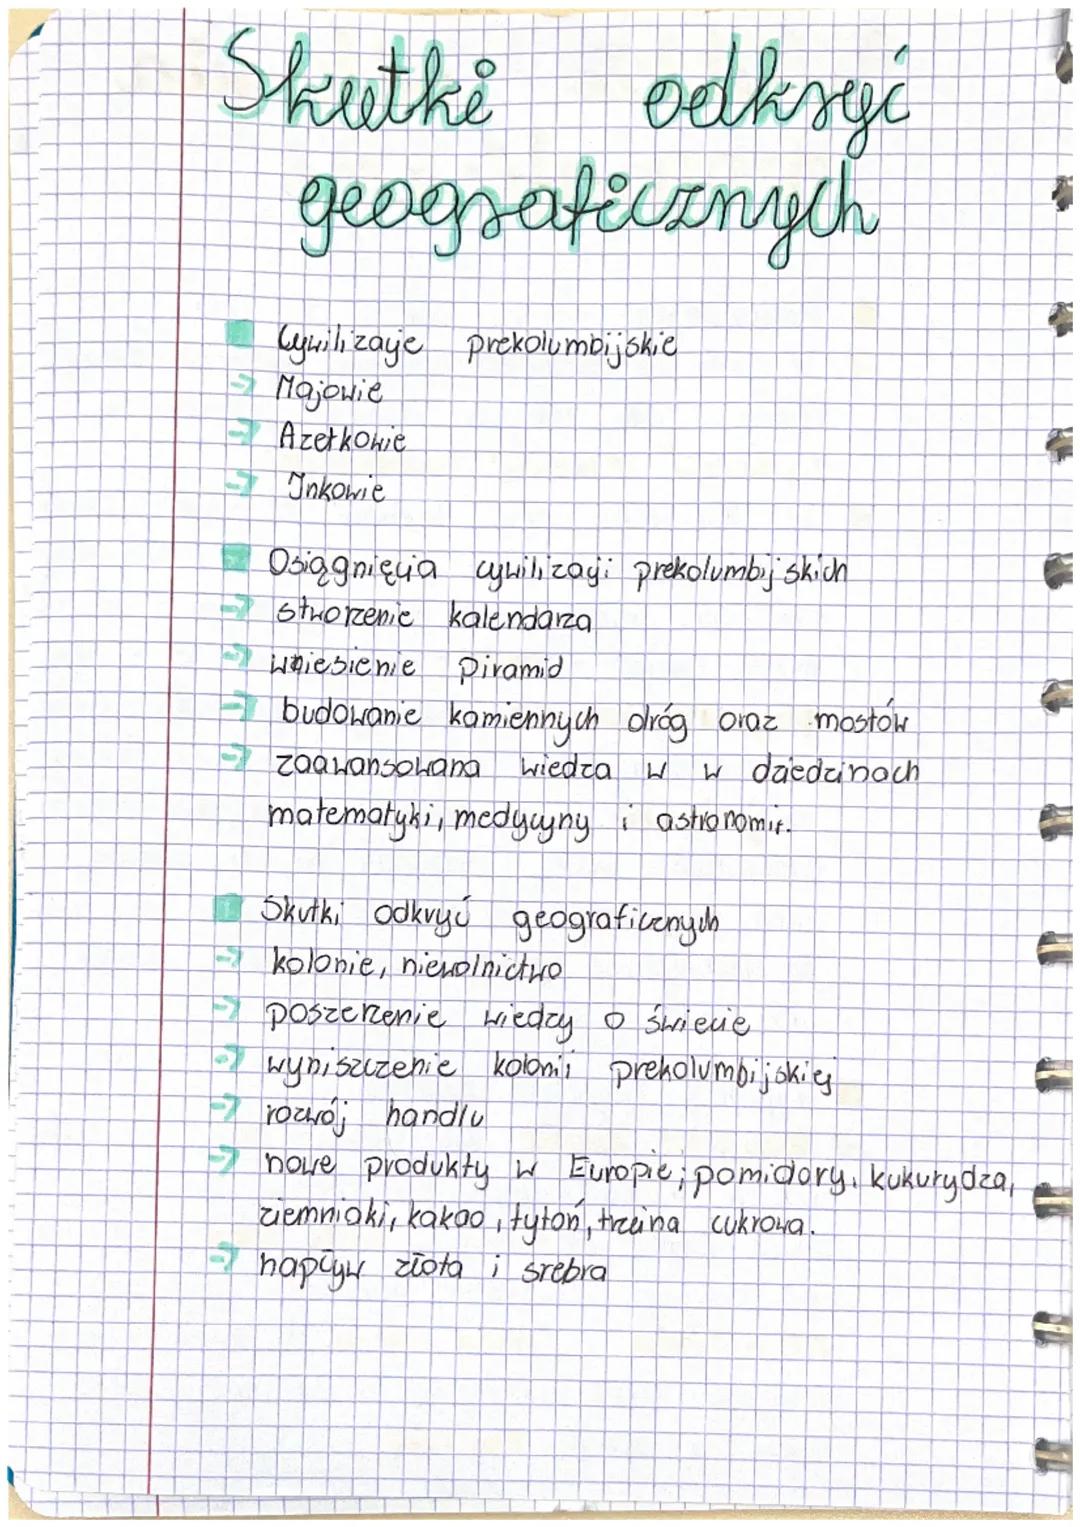 Skutki odkryć
geograficznych
Cywilizacje prekolumbijskie
→ Majowie
→ Azetkowie
→ Inkowie
Osiągnięcia cywilizacji prekolumbijskich
→ stworzenie kalendarza
→ wniesienie piramid
→ budowanie kamiennych dróg oraz mostów
→ zaawansowana wiedza w w dziedzinach
matematyki, medycyny i astronomii.
Skutki odkryć geograficznych
→ kolonie, niewolnictwo
→ poszerzenie wiedzy o świecie
→ wyniszczenie kolonii prekolumbijskiej
→ rozwój handlu
→ nowe produkty w Europie; pomidory, kukurydza,
ziemniaki, kakao, tytoń, trzcina cukrowa.
→ napływ złota i srebra